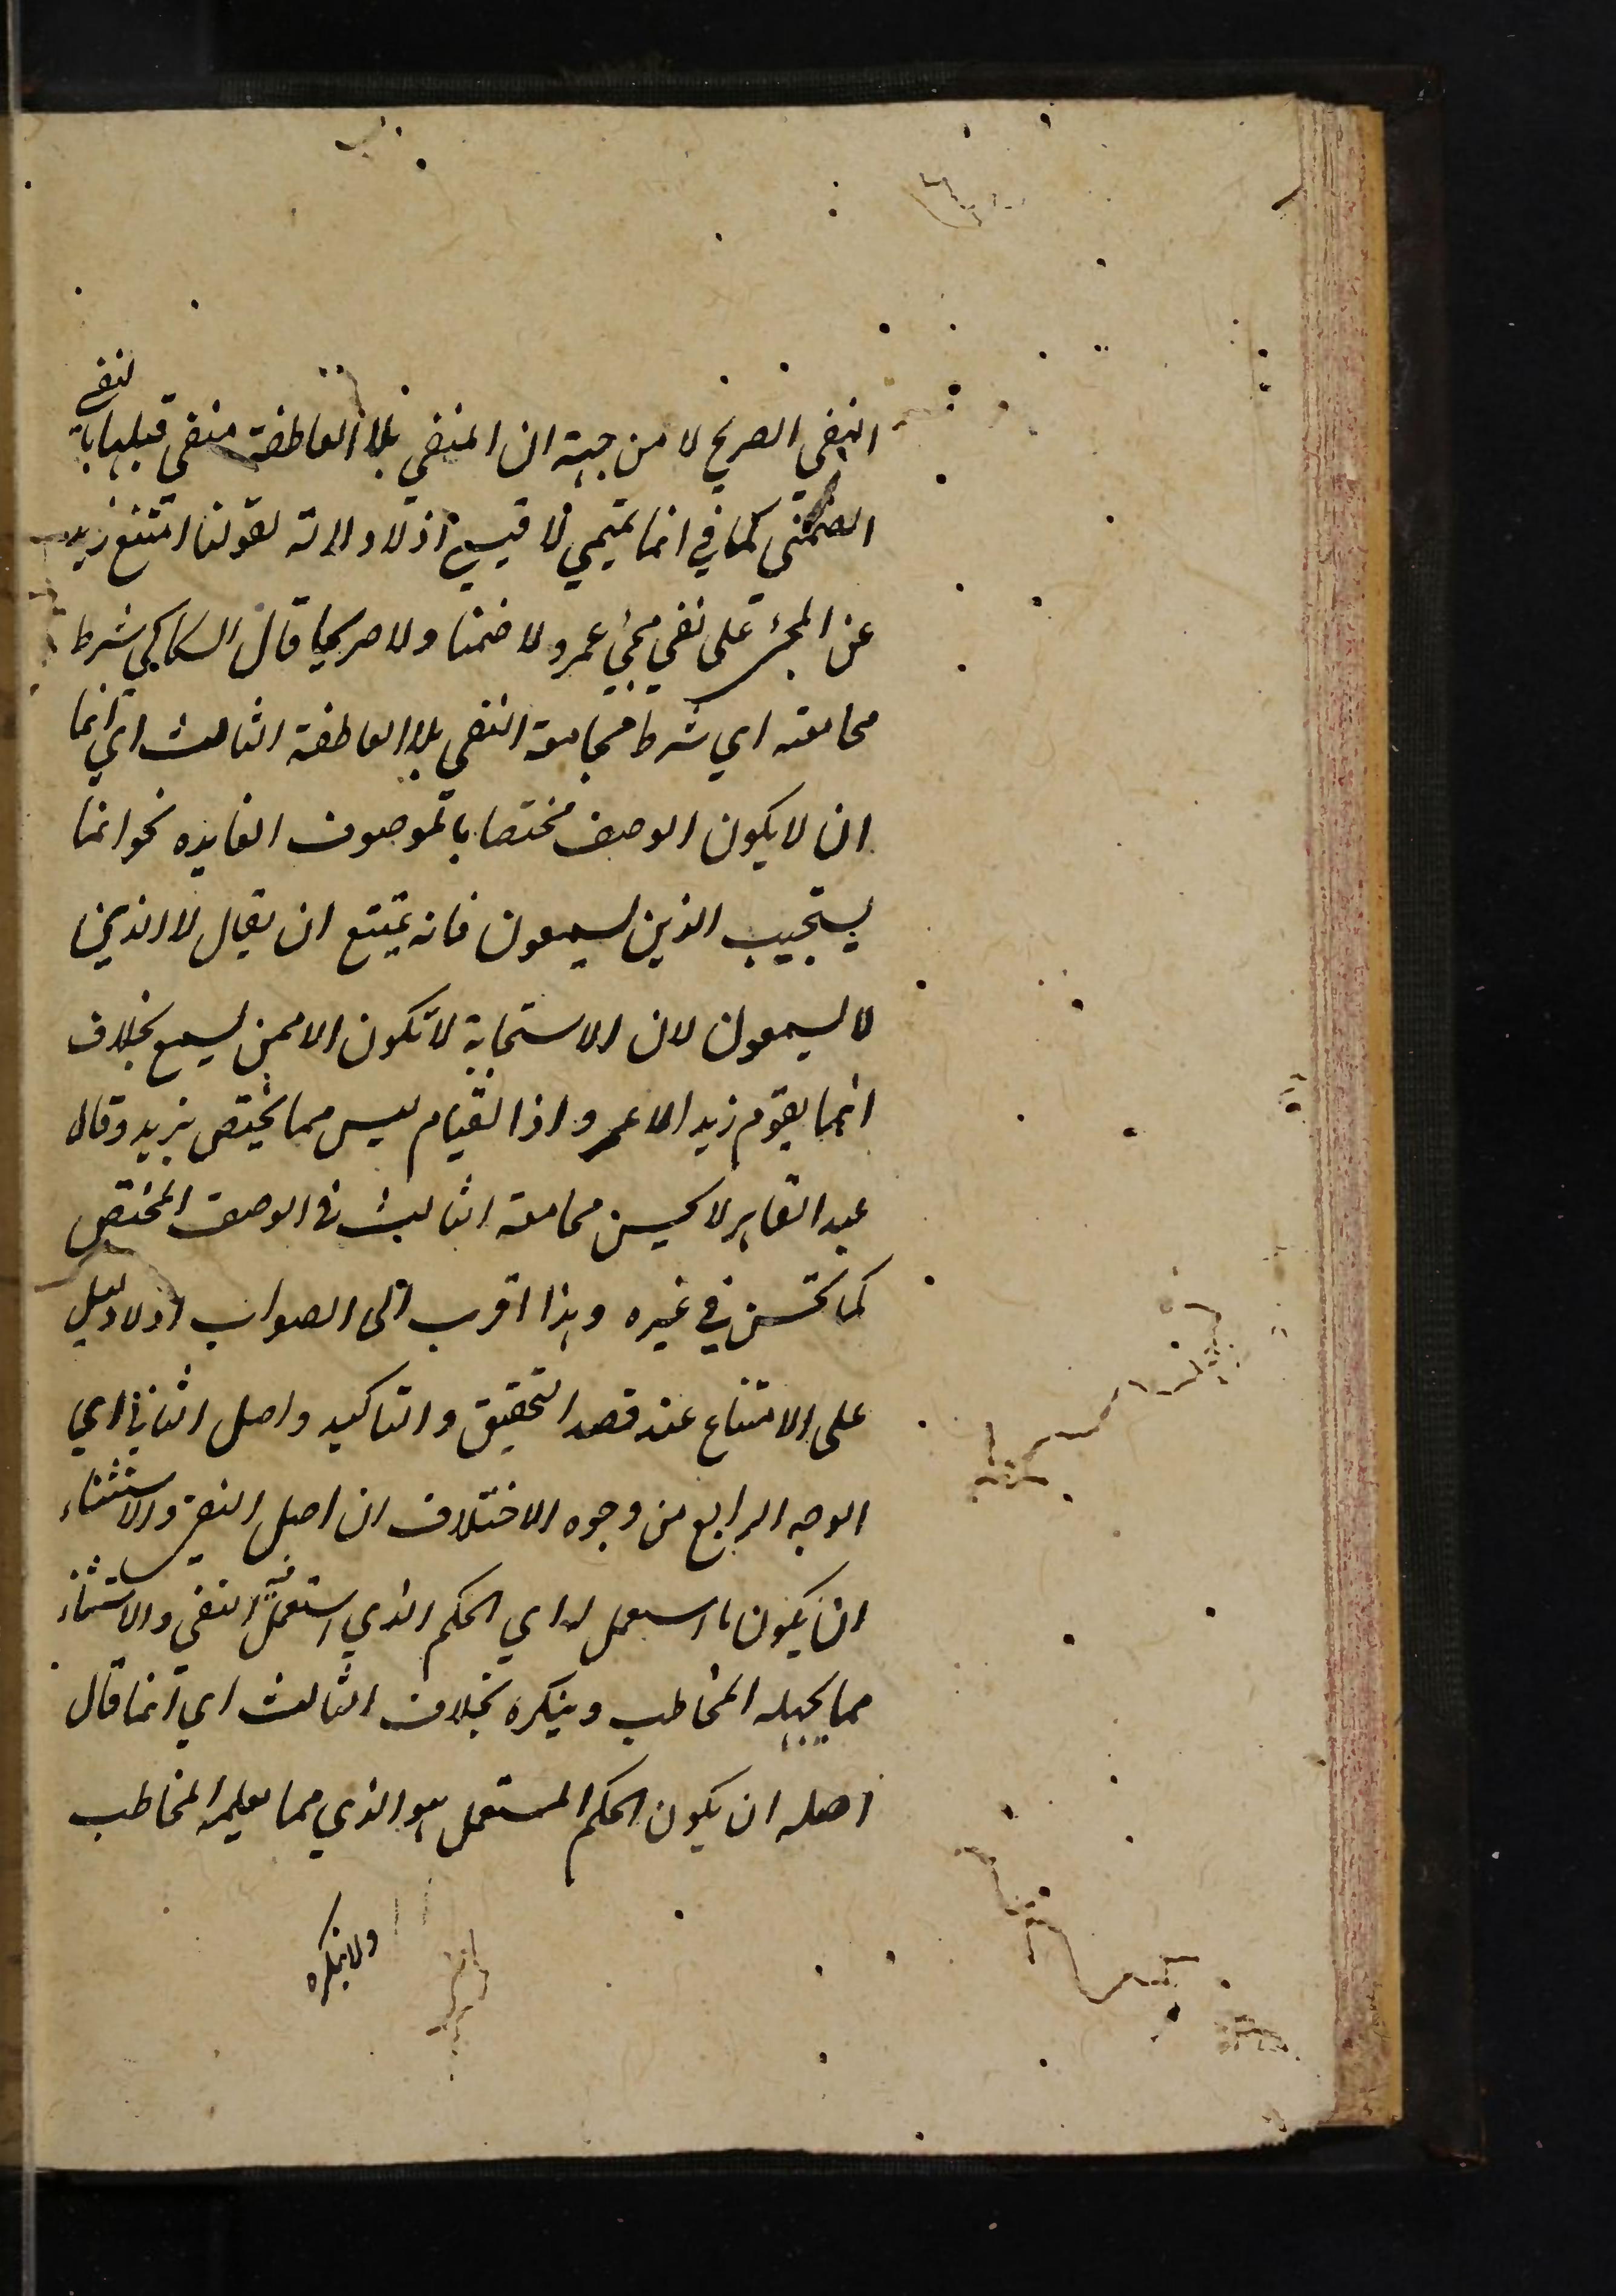 النفي الصريح لا من جهة ان المنفي بلا العاطفة منفي قبلها بالنفي
الضمني كما في انما تميمي لا قيسي اذ لا دلالة لقولنا امتنع زيد
عن المجئ على نفي مجئ عمرو لا ضمنا ولا صريحا قال السكاكي شرط
مجامعته اي شرط مجامعة النفي بلا العاطفة الثالث اي انما
ان لا يكون الوصف مختصا بالموصوف الفايده نحو انما
يستجيب الذين يسمعون فانه يمتنع ان يقال لا الذين
لا يسمعون لان الاستجابة لا تكون الا ممن يسمع بخلاف
انما يقوم زيد لا عمرو اذ القيام ليس مما يختص بزيد وقال
عبد القاهر لا يحسن مجامعة الثالث في الوصف المختص
كما تحسن في غيره وهذا اقرب الى الصواب اذ لا دليل
على الامتناع عند قصد التحقيق والتاكيد واصل الثاني اي
الوجه الرابع من وجوه الاختلاف ان اصل النفي والاستثناء
ان يكون ما استعمل له اي الحكم الذي استعمل فيه النفي والاستثناء
مما يجهله المخاطب وينكره بخلاف الثالث اي انما قال
اصله ان يكون الحكم المستعمل هو الذي مما يعلمه المخاطب
ولا ينكره